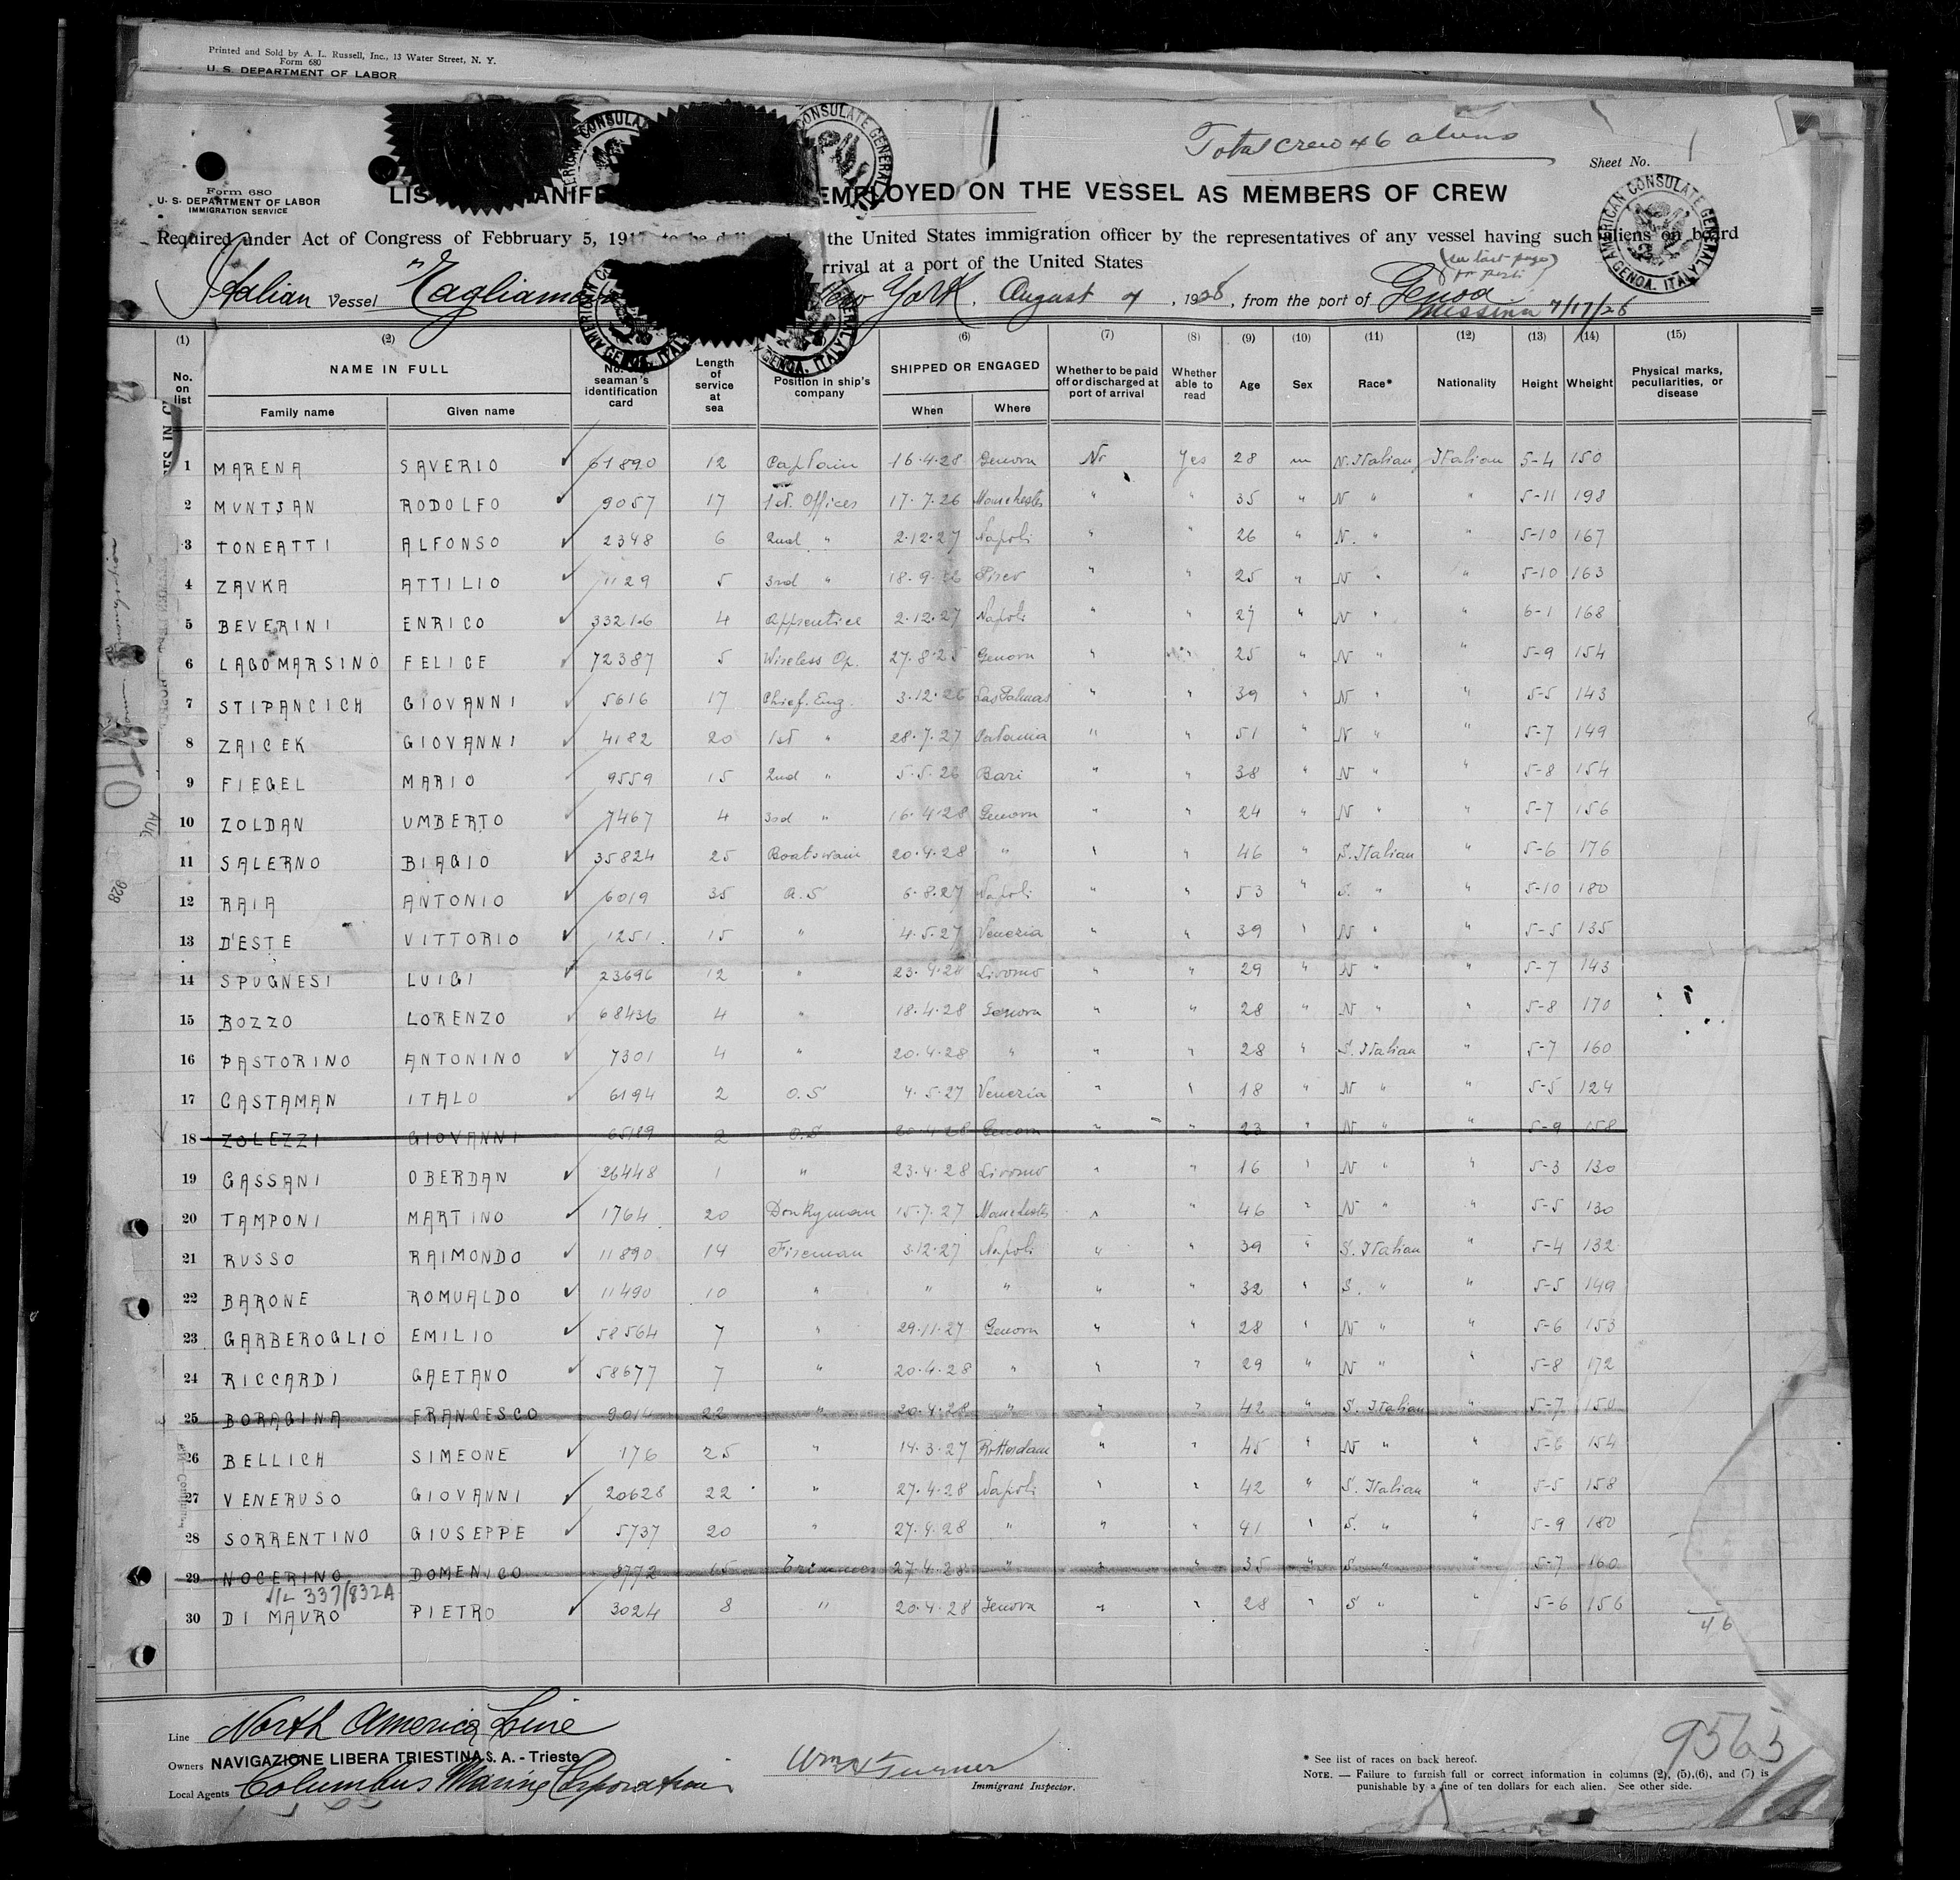 Printed and Sold by A. L. Russell, Inc., 13 Water Street, N. Y.
Form 680
U. S. DEPARTMENT OF LABOR
Total crew 46 aliens
Sheet No. 1
Form 680
U. S. DEPARTMENT OF LABOR
IMMIGRATION SERVICE
EMPLOYED ON THE VESSEL AS MEMBERS OF CREW
AMERICAN CONSULATE GENERAL GENOA, ITALY
Required under Act of Congress of Febbruary 5, 191 the United States immigration officer by the representatives of any vessel having such aliens on board
rrival at a port of the United States
(see last page
Italian Vessel New York, August 4, 1928, from the port of Genoa
Messina 7/17/28
(1) (2) (6) (7) (8) (9) (10) (11) (12) (13) (14) (15)
No. on list NAME IN FULL Family name Given name No. seaman's identification card Length of service at sea Position in ship's company SHIPPED OR ENGAGED When Where Whether to be paid off or discharged at port of arrival Whether able to read Age Sex Race* Nationality Height Wheight Physical marks, peculiarities, or disease
1 MARENA SAVERIO 61890 12 Captain 16.4.28 Genova No Yes 28 m N. Italian Italian 5-4 150
2 MUNTSAN RODOLFO 9057 17 1st. Officer 17.7.26 Manchester " " 35 " N " " 5-11 198
3 TONEATTI ALFONSO 2348 6 2nd " 2.12.27 Napoli " 26 " N. " " 5-10 167
4 ZAVKA ATTILIO 1129 5 3rd " 18.9.26 " " 25 " N " " 5-10 163
5 BEVERINI ENRICO 33216 4 Apprentice 2.12.27 Napoli " " 27 " N " " 6-1 168
6 LAGOMARSINO FELICE 72387 5 Wireless Op. 27.8.25 Genova " " 25 " N " " 5-9 154
7 STIPANCICH GIOVANNI 5616 17 Chief. Eng. 3.12.26 Las Palmas " " 39 " N " " 5-5 143
8 ZAICEK GIOVANNI 4182 20 1st " 28.7.27 Catania " " 51 " N " " 5-7 149
9 FIEGEL MARIO 9559 15 2nd " 5.5.26 Bari " " 38 " N " " 5-8 154
10 ZOLDAN UMBERTO 7467 4 3rd " 16.4.28 Genova " " 24 " N " " 5-7 156
11 SALERNO BIAGIO 35824 25 Boatswain 20.4.28 " " " 46 " S. Italian " 5-6 176
12 RAIA ANTONIO 6019 35 A.S 6.8.27 Napoli " " 53 " S. " " 5-10 180
13 D'ESTE VITTORIO 1251 15 " 4.5.27 Venezia " " 39 " N " " 5-5 135
14 SPUGNESI LUIGI 23696 12 " 23.4.28 Livorno " " 29 " N " " 5-7 143
15 BOZZO LORENZO 68436 4 " 18.4.28 Genova " " 28 " N " " 5-8 170
16 PASTORINO ANTONINO 7301 4 " 20.4.28 " " " 28 " S. Italian " 5-7 160
17 CASTAMAN ITALO 6194 2 O.S 4.5.27 Venezia " " 18 " N " " 5-5 124
18 ZOLEZZI GIOVANNI 65189 2 O.S 20.4.28 Genova " " 23 " N " " 5-9 158
19 GASSANI OBERDAN 26448 1 " 23.4.28 Livorno " " 16 " N " " 5-3 130
20 TAMPONI MARTINO 1764 20 Donkyman 15.7.27 Manchester " " 46 " N " " 5-5 130
21 RUSSO RAIMONDO 11890 14 Fireman 3.12.27 Napoli " " 39 " S. Italian " 5-4 132
22 BARONE ROMUALDO 11490 10 " " " " " 32 " S. " " 5-5 149
23 GARBEROGLIO EMILIO 58564 7 " 29.11.27 Genova " " 28 " N " " 5-6 153
24 RICCARDI GAETANO 58677 7 " 20.4.28 " " " 29 " N " " 5-8 172
25 BORAGINA FRANCESCO 9014 22 " 20.4.28 " " " 42 " S. Italian " 5-7 150
26 BELLICH SIMEONE 176 25 " 14.3.27 Rotterdam " " 45 " N " " 5-6 154
27 VENERUSO GIOVANNI 20628 22 " 27.4.28 Napoli " " 42 " S. Italian " 5-5 158
28 SORRENTINO GIUSEPPE 5737 20 " 27.4.28 " " " 41 " S. " " 5-9 180
29 NOCERINO DOMENICO 8772 15 Trimmer 27.4.28 " " " 35 " S. " " 5-7 160
337/832A
30 DI MAURO PIETRO 3024 8 " 20.4.28 Genova " " 28 " S " " 5-6 156
46
Line North America Line
Owners NAVIGAZIONE LIBERA TRIESTINA S. A. - Trieste
Local Agents Columbus Marine Corporation
Immigrant Inspector.
* See list of races on back hereof.
NOTE. — Failure to furnish full or correct information in columns (2), (5),(6), and (7) is
punishable by a fine of ten dollars for each alien. See other side.
9565